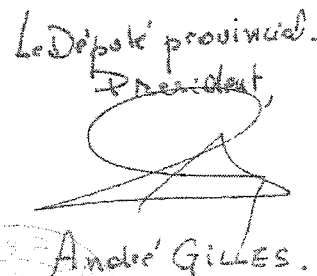 Le Député provincial.
President,
André GILLES.